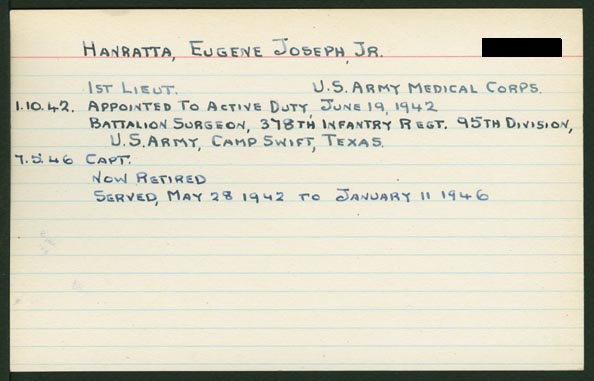 HANRATTA, EUGENE JOSEPH, JR.
1ST LIEUT. U.S. ARMY MEDICAL CORPS.
1.10.42. APPOINTED TO ACTIVE DUTY, JUNE 19, 1942
BATTALION SURGEON, 378TH INFANTRY REGT. 95TH DIVISION,
U.S. ARMY, CAMP SWIFT, TEXAS.
7.5.46 CAPT.
NOW RETIRED
SERVED, MAY 28 1942 TO JANUARY 11 1946